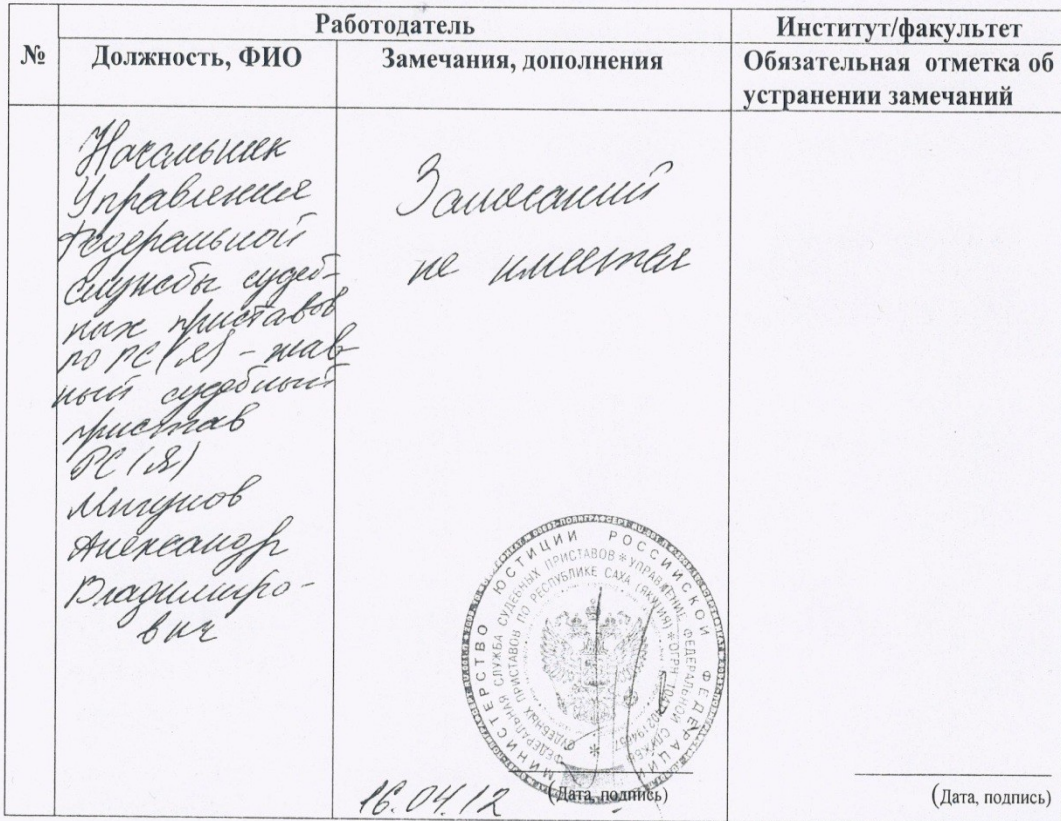 №
Работодатель
Институт/факультет
Должность, ФИО
Замечания, дополнения
Обязательная отметка об
устранении замечаний
Начальник
Управления
Федеральной
службы судеб-
ных приставов
по РС(Я) - глав
ный судебный
пристав
РС(Я)
Мигунов
Александр
Владимиро-
вич
Замечаний
не имеется
МИНИСТЕРСТВО ЮСТИЦИИ РОССИЙСКОЙ ФЕДЕРАЦИИ
ФЕДЕРАЛЬНАЯ СЛУЖБА СУДЕБНЫХ ПРИСТАВОВ * УПРАВЛЕНИЕ ФЕДЕРАЛЬНОЙ СЛУЖБЫ
СУДЕБНЫХ ПРИСТАВОВ ПО РЕСПУБЛИКЕ САХА (ЯКУТИЯ) * ОГРН
16.04.12
(Дата, подпись)
(Дата, подпись)